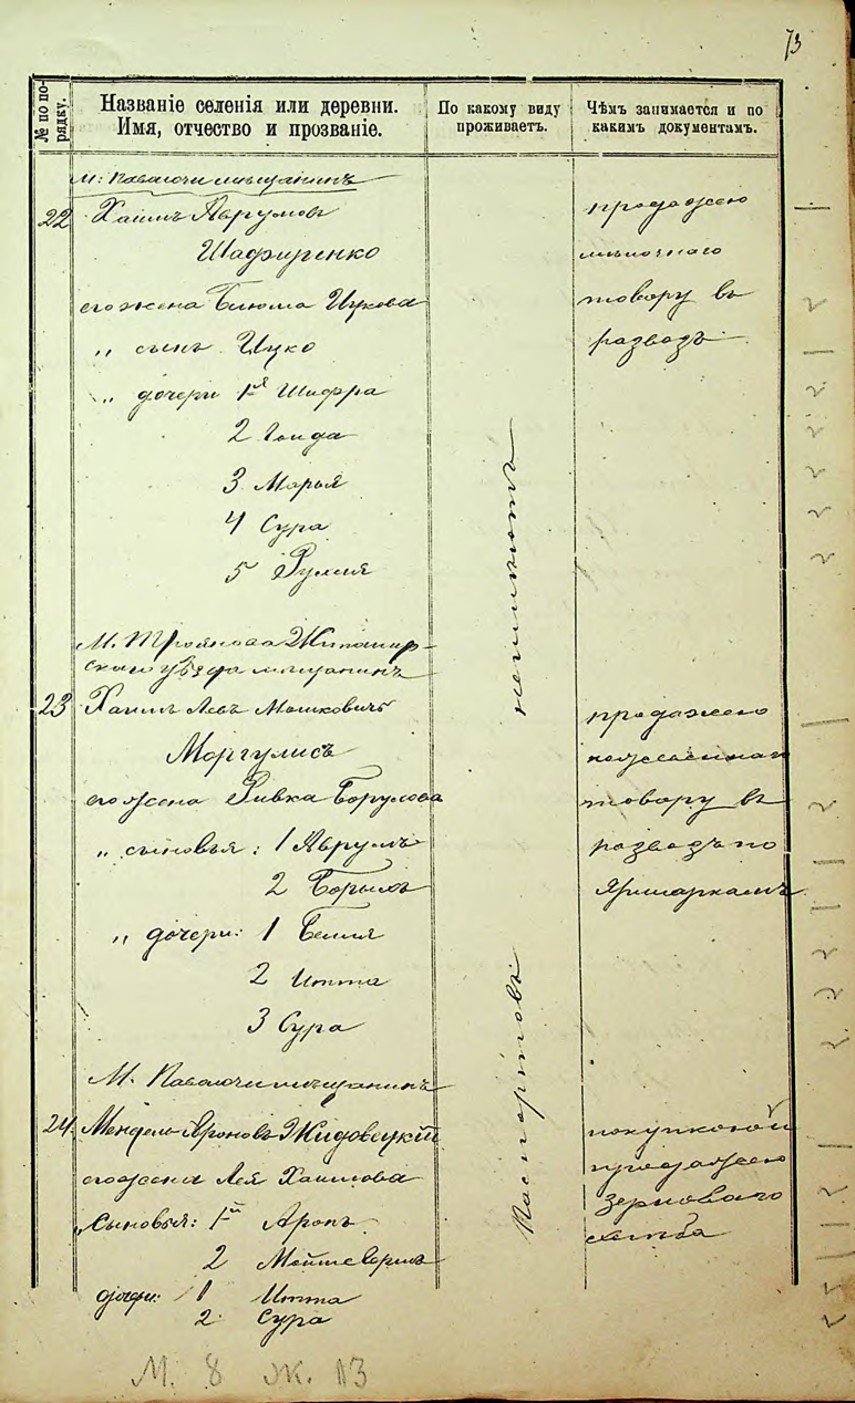 73
№ по по-
рядку.
Названіе селенія или деревни.
Имя, отчество и прозваніе.
По какому виду
проживаетъ.
Чѣмъ занимается и по
какимъ документамъ.
М: Паволочи мѣщанинъ
22 Хаимъ Аврумовъ
Шафиренко
его жена Бліома Ицкова
„ сынъ Ицко
„ дочери 1я Шифра
2
3 Марья
4 Сура
5
продажею
мѣлочнаго
товару въ
развозъ
М. Трояновъ Житомир-
скаго уѣзда мѣщанинъ
23 Хаимъ Левъ Мошковичъ
Моргулисъ
его жена Ривка Борулова
„ сыновья: 1 Аврумъ
2 Борухъ
„ дочери: 1 Бейля
2 Итта
3 Сура
продажею
товару въ
развозъ по
Ярмаркамъ
М. Паволочи мѣщанинъ
24 Мендель Ароновъ Жидовецкій
его жена Лея Хаимова
„ Сыновья: 1й Аронъ
2
дочери: 1 Итта
2 Сура
Паспортовъ неимѣютъ
покупкою и
продажею
зерноваго
хлѣба
М. 8 Ж. 13